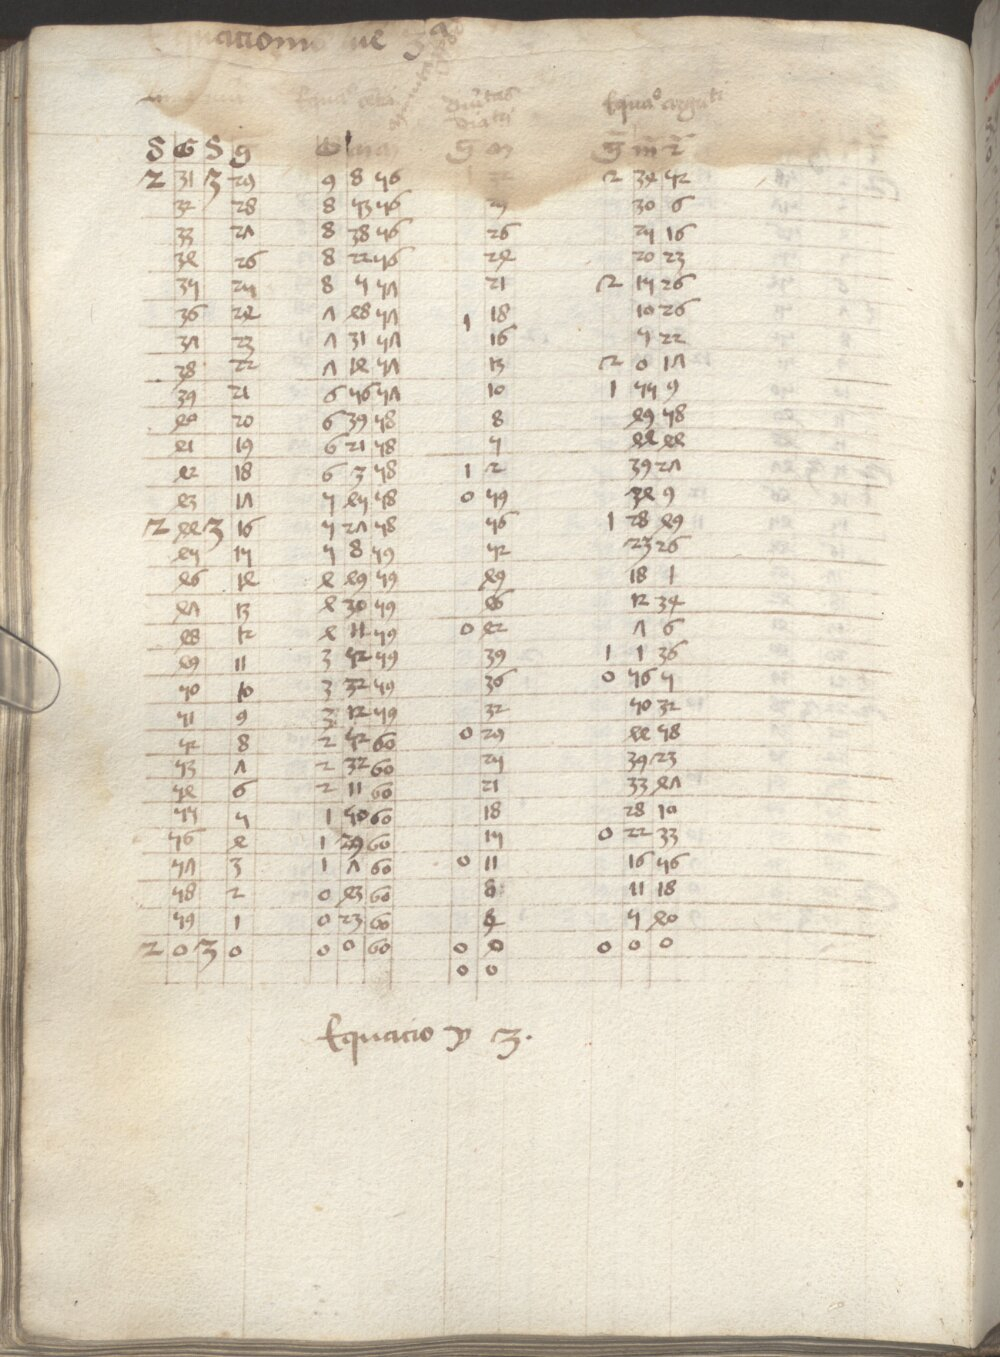 S G S g g m
g m 2
2 31 3 29 9 8 56 2 34 52
32 28 8 53 56 29 30 6
33 27 8 38 56 26 25 16
34 26 8 22 56 24 20 23
35 25 8 5 57 21 2 15 26
36 24 7 48 57 1 18 10 26
37 23 7 31 57 16 5 22
38 22 7 14 57 13 2 0 17
39 21 6 56 57 10 1 55 9
40 20 6 39 58 8 49 58
41 19 6 21 58 5 44 44
42 18 6 3 58 1 2 39 27
43 17 5 45 58 0 59 34 9
2 44 3 16 5 27 58 56 1 28 49
45 15 5 8 59 52 23 26
46 14 4 49 59 49 18 1
47 13 4 30 59 46 12 34
48 12 4 11 59 0 42 7 6
49 11 3 52 59 39 1 1 36
50 10 3 32 59 36 0 56 5
51 9 3 12 59 32 50 32
52 8 2 52 60 0 29 44 58
53 7 2 32 60 25 39 23
54 6 2 11 60 21 33 47
55 5 1 50 60 18 28 10
56 4 1 29 60 15 0 22 33
57 3 1 7 60 0 11 16 56
58 2 0 43 60 8 11 18
59 1 0 23 60 4 5 40
2 0 3 0 0 0 60 0 0 0 0 0
0 0
Equacio 3.